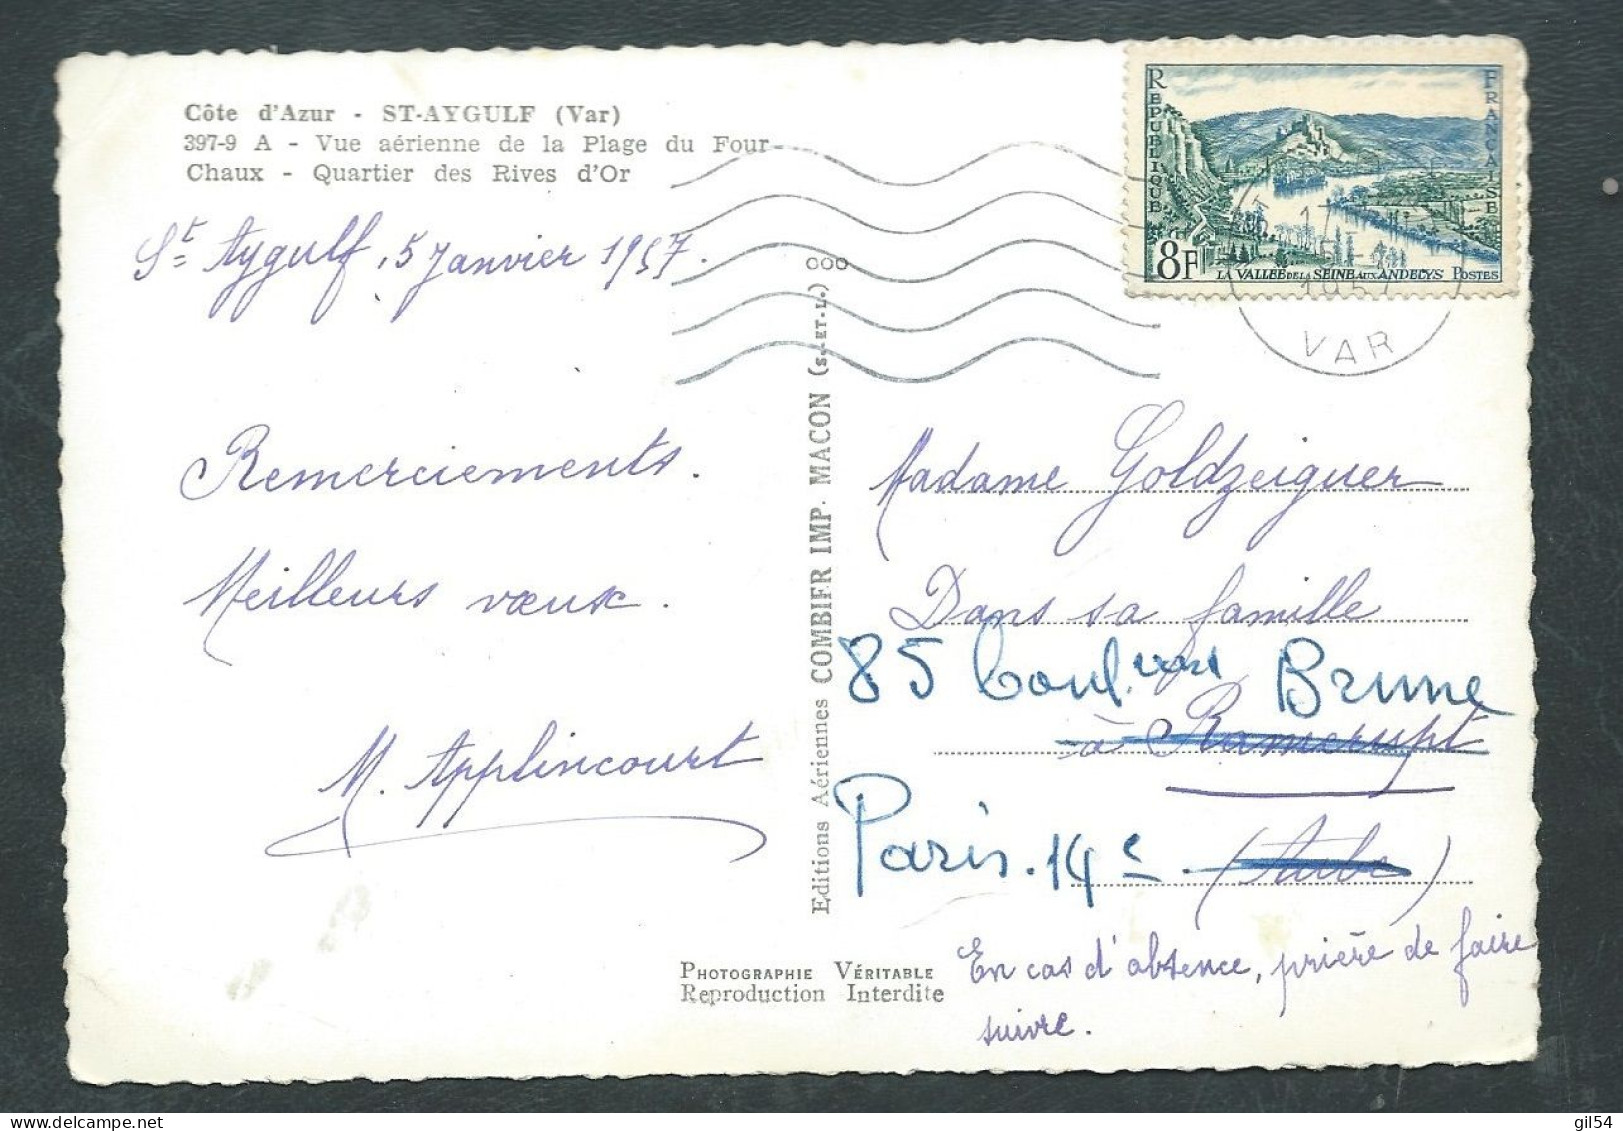 Côte d'Azur - ST-AYGULF (Var)
397-9 A - Vue aérienne de la Plage du Four
Chaux - Quartier des Rives d'Or
St Aygulf, 5 Janvier 1957.
Remerciements.
Meilleurs vœux.
M. Applincourt
Editions Aériennes COMBIER IMP. MACON (S.-ET-L.) OOO
PHOTOGRAPHIE VÉRITABLE
Reproduction Interdite
REPUBLIQUE FRANCAISE
8F
LA VALLEE DE LA SEINE AUX ANDELYS POSTES
17
1957
VAR
Madame Goldzeiguer
Dans sa famille
85 boulevard Brune
à Ramerupt
Paris. 14e
(Aube)
En cas d'absence, prière de faire
suivre.
gil54